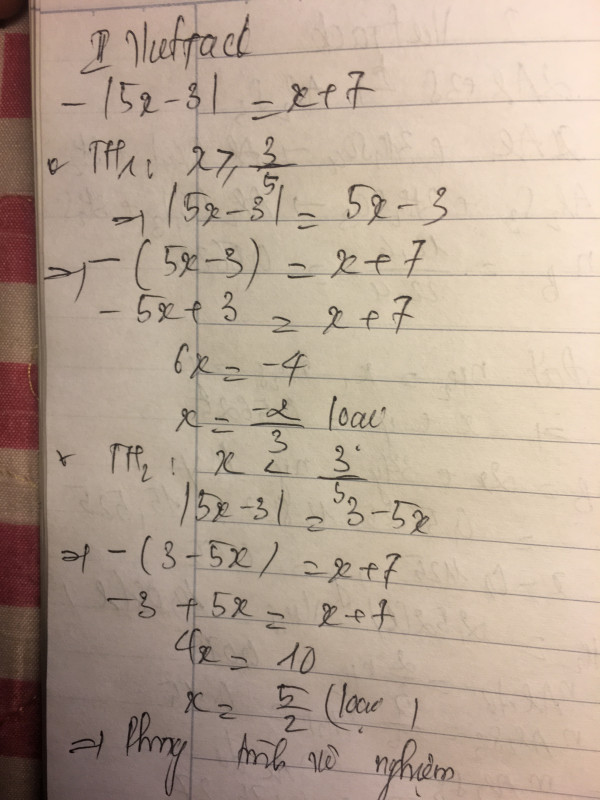 - |5x - 3| = x + 7
TH1: x ≥ 3/5
⇒ |5x - 3| = 5x - 3
⇒ - (5x - 3) = x + 7
- 5x + 3 = x + 7
6x = -4
x = -2/3 loại
TH2: x < 3/5
|5x - 3| = 3 - 5x
⇒ - (3 - 5x) = x + 7
- 3 + 5x = x + 7
4x = 10
x = 5/2 (loại)
⇒ Phương trình vô nghiệm